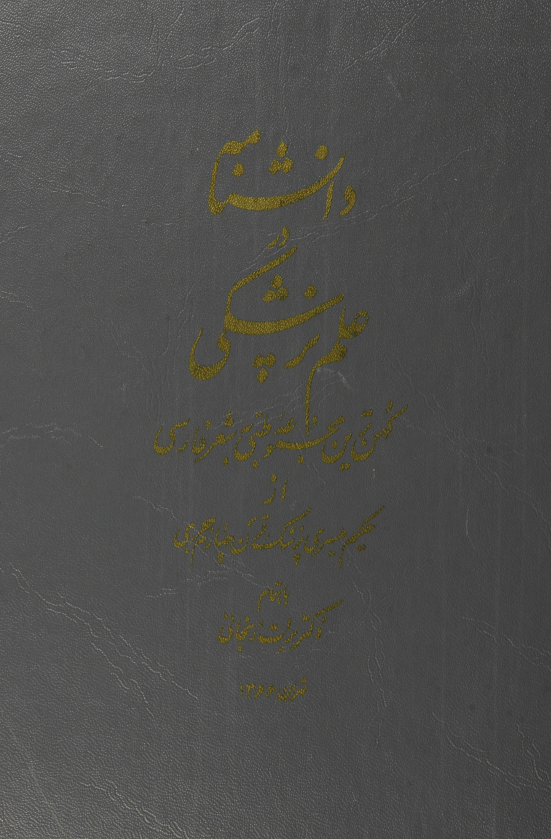 دانشنامه
در
علم پزشکی
کهن ترین مجموعه طبی بشعر فارسی
از
حکیم میسری پزشک قرن چهارم هجری
باهتمام
دکتر برات زنجانی
تهران ۱۳۶۶